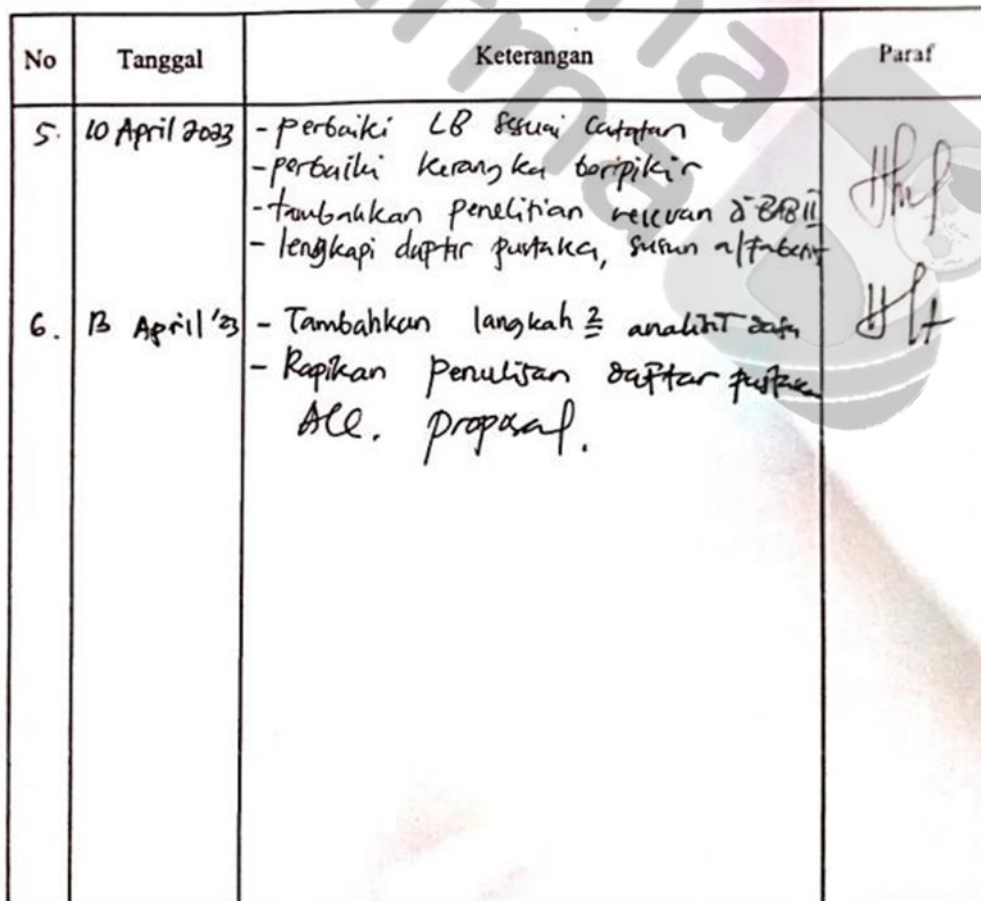 No Tanggal Keterangan Paraf
5. 10 April 2023 - perbaiki LB sesuai Catatan
- perbaiki kerangka berpikir
- tambahkan penelitian relevan di BAB II
- lengkapi daptar pustaka, susun alfabetis
6. 13 April '23 - Tambahkan langkah 2 analisis data
- Rapikan penulisan daftar pustaka
Acc. proposal.